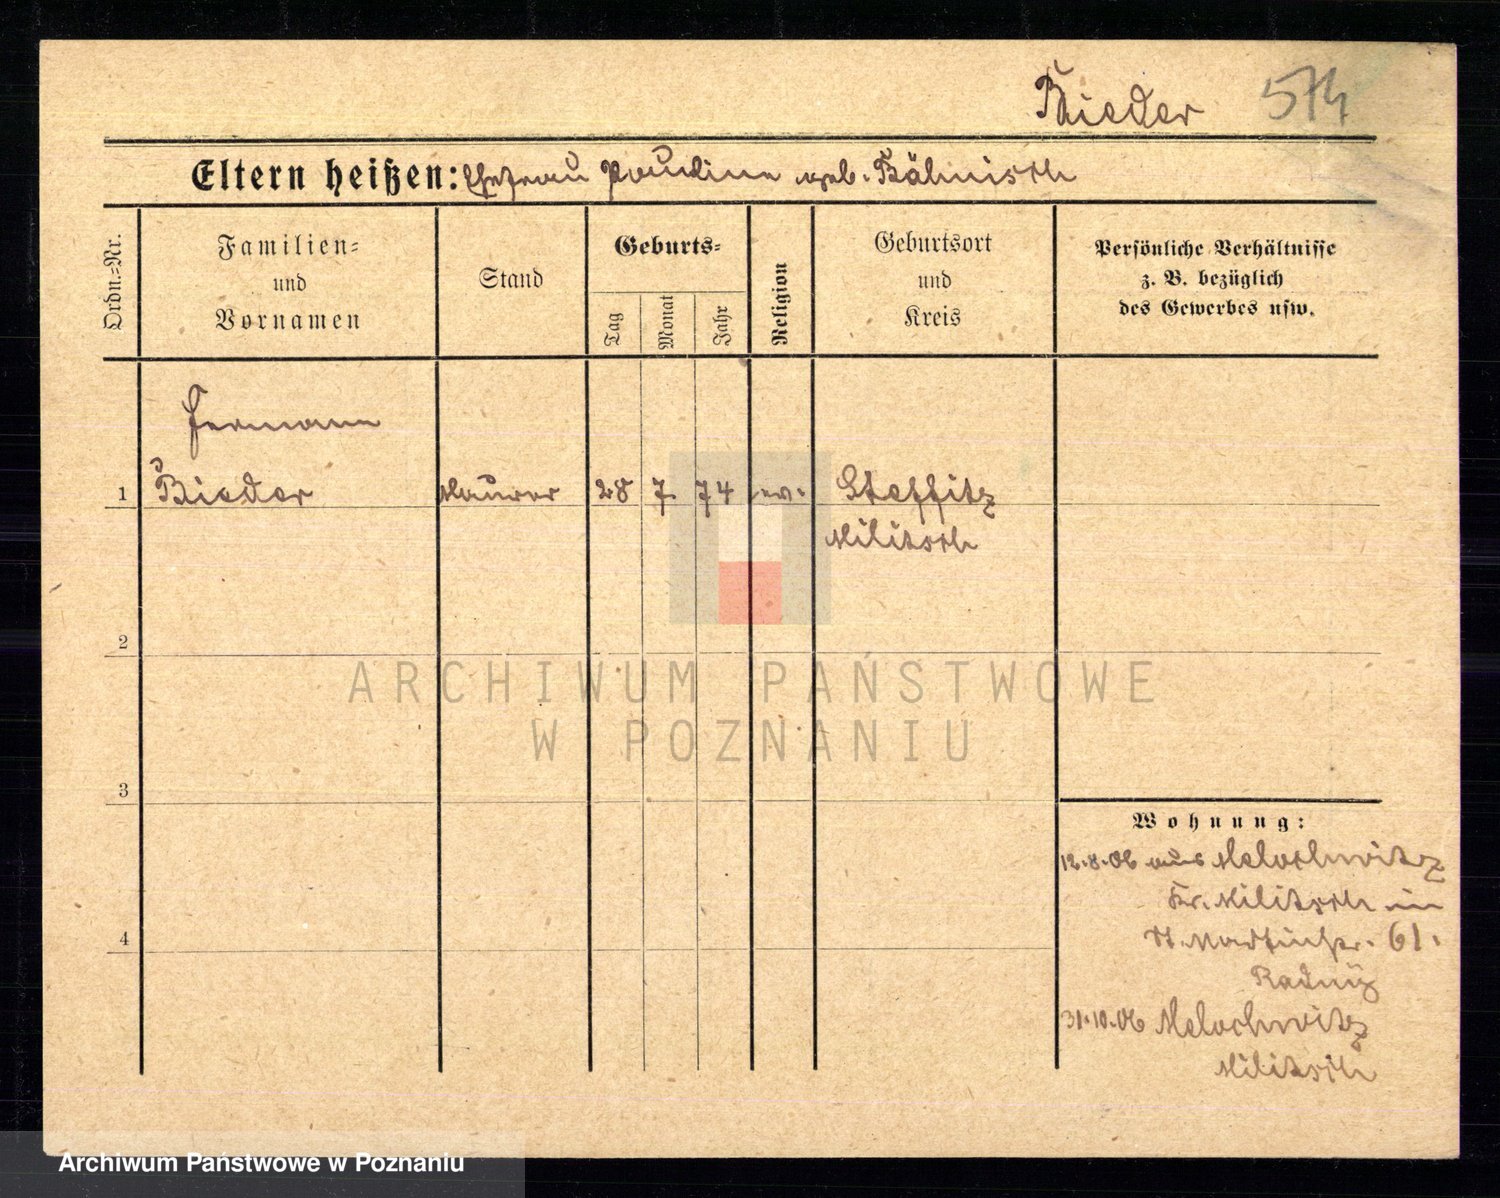 Bieder 574
Eltern heißen: Ehefrau Pauline geb. Bähnisch
Ordn.=Nr.
Familien=
und
Vornamen
Stand
Geburts=
Tag
Monat
Jahr
Religion
Geburtsort
und
Kreis
Persönliche Verhältnisse
z. B. bezüglich
des Gewerbes usw.
Hermann
1 Bieder Maurer 28 7. 74 ev. Steffitz
Militsch
2
3
4
ARCHIWUM PAŃSTWOWE
W POZNANIU
Wohnung:
12.8.06 aus Melochwitz
Kr. Militsch in
St. Martinstr. 61.
31.10.06 Melochwitz
Militsch
Archiwum Państwowe w Poznaniu